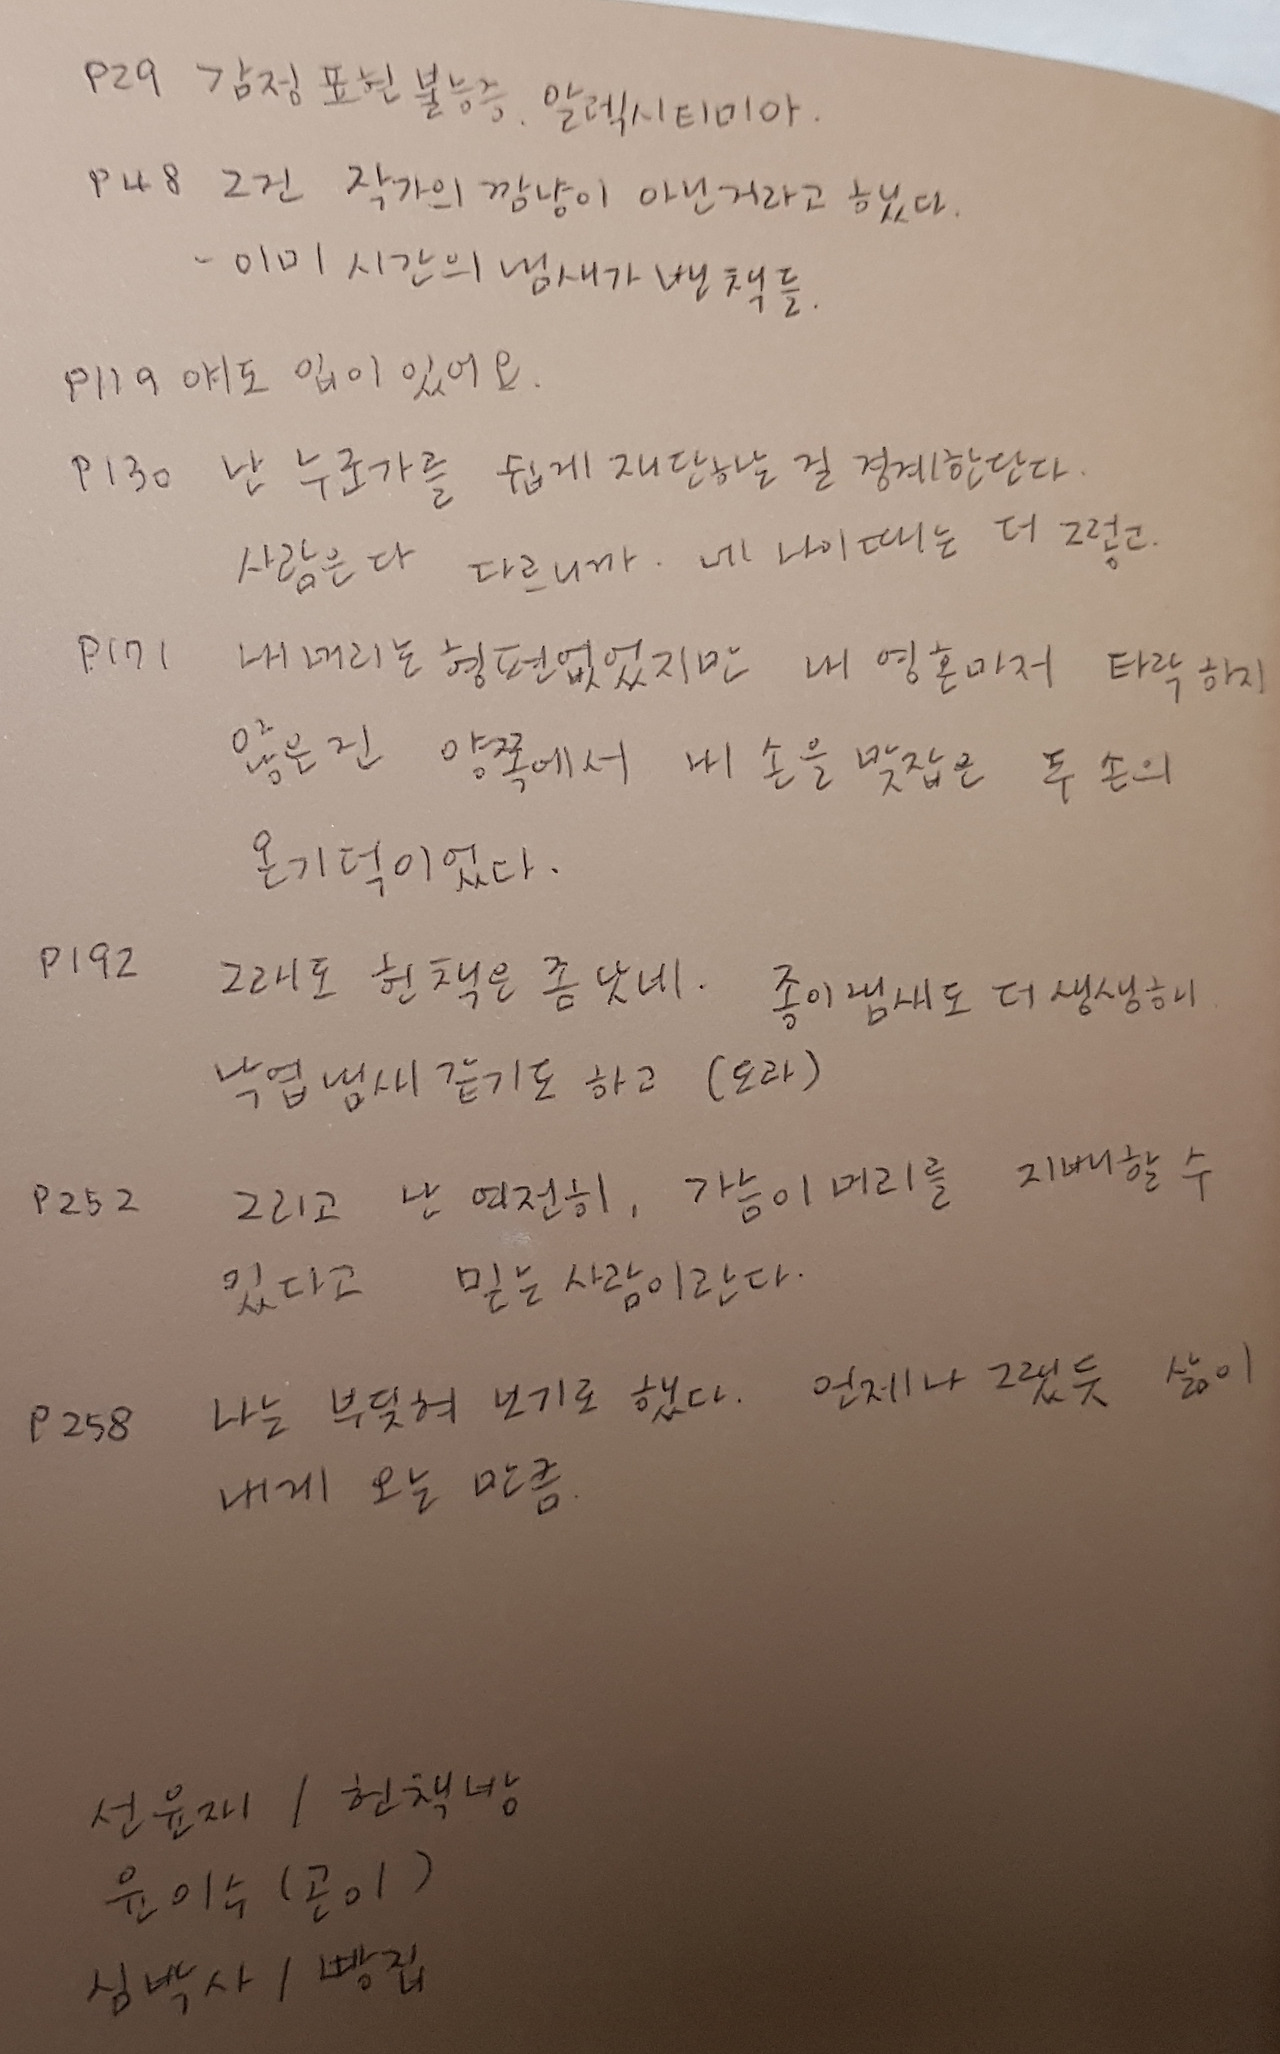 P29 감정 표현 불능증. 알렉시티미아.
P48 그건 작가의 깜냥이 아닌거라고 했다.
- 이미 시간의 냄새가 밴 책들.
P119 얘도 입이 있어요.
P130 난 누군가를 쉽게 재단하는 걸 경계한단다.
사람은 다 다르니까. 네 나이때는 더 그렇고.
P171 내 머리는 형편없었지만 내 영혼마저 타락하지
않은 건 양쪽에서 내 손을 맞잡은 두 손의
온기 덕이었다.
P192 그래도 헌 책은 좀 낫네. 종이 냄새도 더 생생해
낙엽 냄새 같기도 하고 (도라)
P252 그리고 난 여전히, 가슴이 머리를 지배할 수
있다고 믿는 사람이란다.
P258 나는 부딪혀 보기로 했다. 언제나 그랬듯 삶이
내게 오는 만큼.
선윤재 / 헌책방
윤이수 (곤이)
심박사 / 빵집